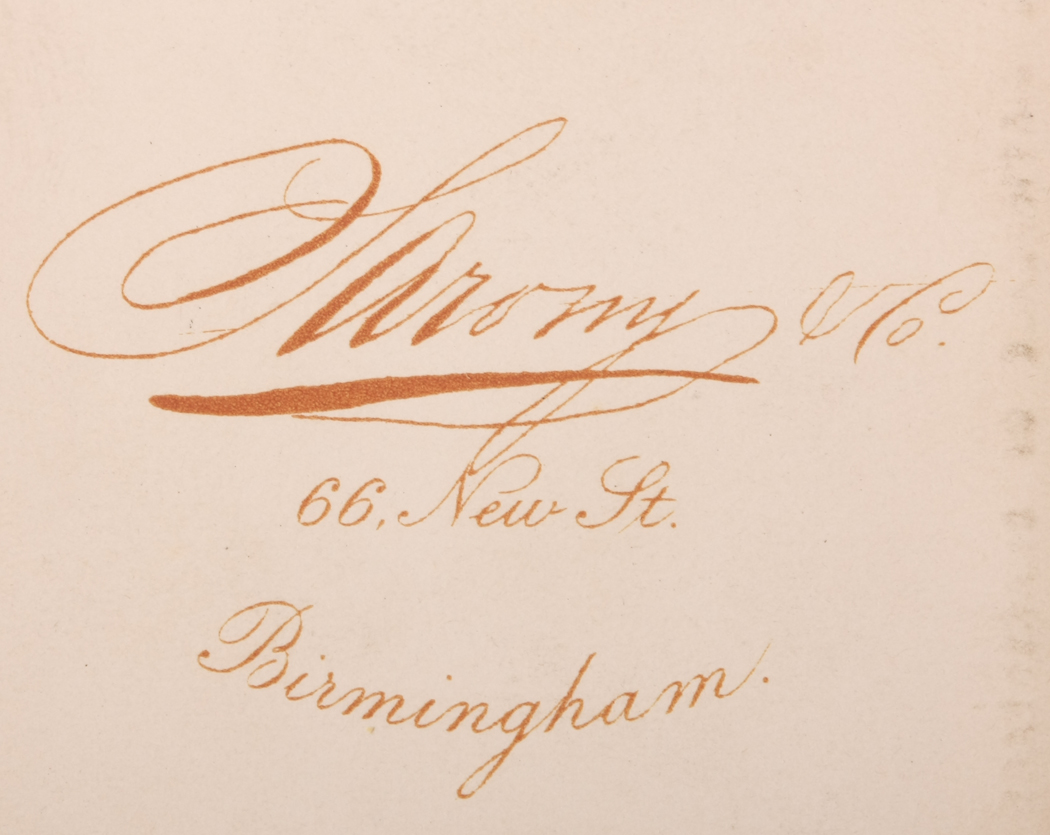 Sarony & Co.
66, New St.
Birmingham.